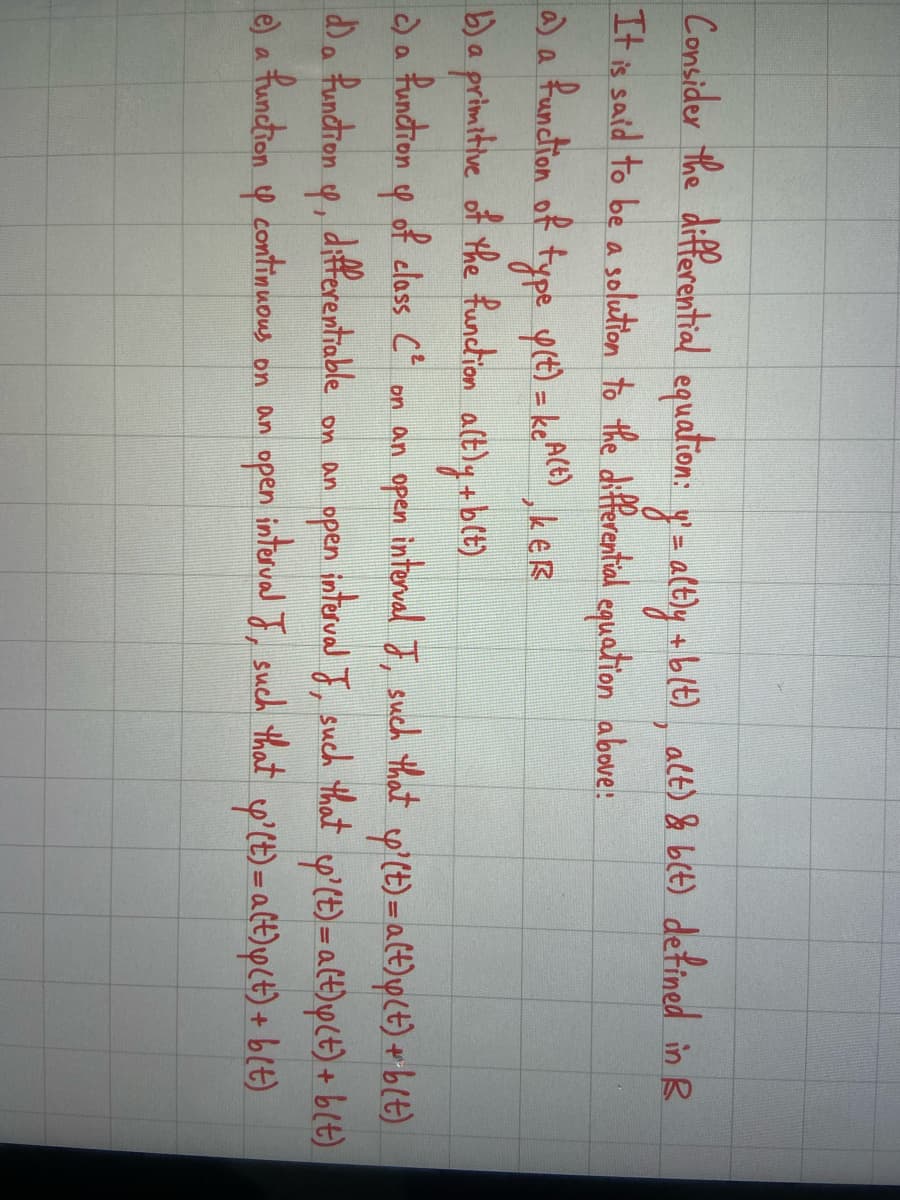 Consider the differential equation: y' = a(t)y + b(t) , a(t) & b(t) defined in R
It is said to be a solution to the differential equation above:
a) a function of type φ(t) = ke^A(t) , k ∈ R
b) a primitive of the function a(t)y + b(t)
c) a function φ of class C² on an open interval J, such that φ'(t) = a(t)φ(t) + b(t)
d) a function φ, differentiable on an open interval J, such that φ'(t) = a(t)φ(t) + b(t)
e) a function φ continuous on an open interval J, such that φ'(t) = a(t)φ(t) + b(t)